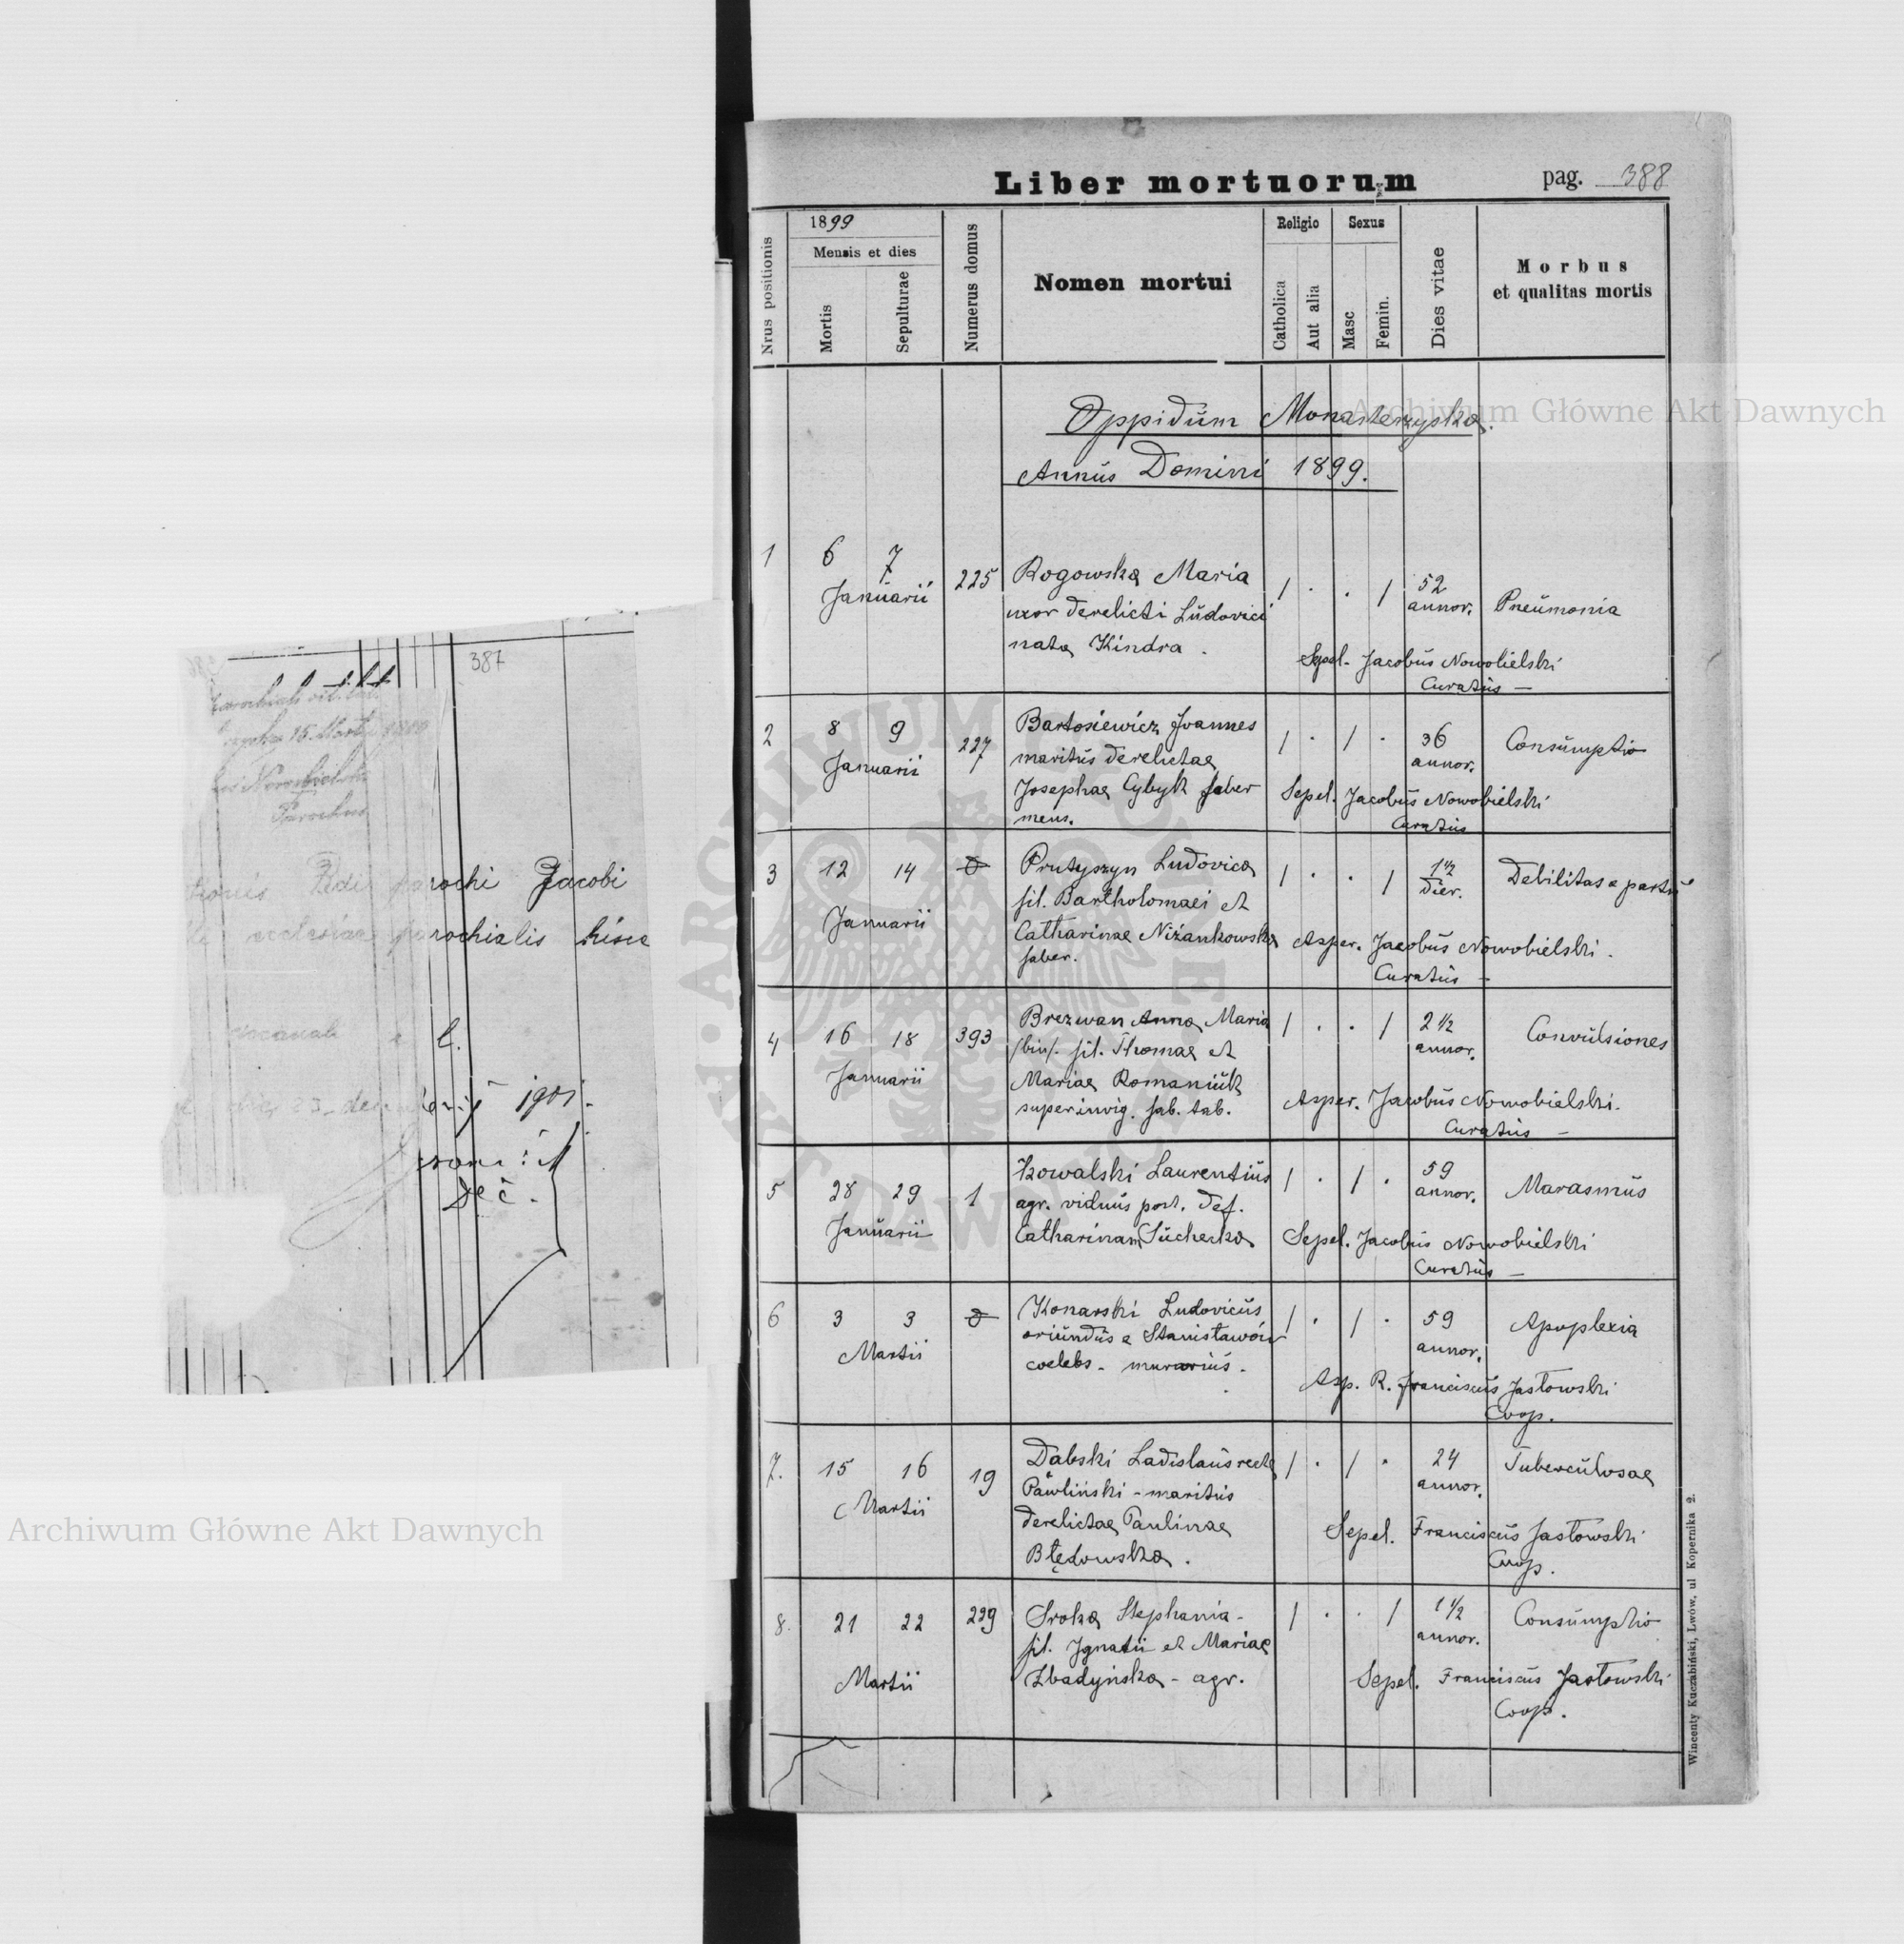 387
15. Martii
Parochus
parochi Jacobi
ecclesiae parochialis hisce
23
1901.
Liber mortuorum
pag. 388
Nrus positionis
1899
Mensis et dies
Mortis
Sepulturae
Numerus domus
Nomen mortui
Religio
Catholica
Aut alia
Sexus
Masc
Femin.
Dies vitae
Morbus
et qualitas mortis
Oppidum Monasterzyska.
Annus Domini 1899.
1 6 7 225 Rogowska Maria 1 . . 1 52
Januarii uxor derelicti Ludovici annor. Pneumonia
nata Kindra.
Sepel. Jacobus Nowobielski
Curatus —
2 8 9 227 Bartosiewicz Joannes 1 . 1 . 36 Consumptio
Januarii maritus derelictae annor.
Josephae Cybyk faber Sepel. Jacobus Nowobielski
mens. Curatus
3 12 14 Prutyszyn Ludovica 1 . . 1 1 1/2 Debilitas a partu
fil. Bartholomaei et dier.
Januarii
Catharinae Niżankowska Asper. Jacobus Nowobielski.
faber. Curatus —
4 16 18 393 Brezwan Anna Maria 1 . . 1 2 1/2 Convulsiones
/bin/. fil. Thomae et annor.
Januarii Mariae Romaniuk
superinvig. fab. tab. Asper. Jacobus Nowobielski.
Curatus —
5 28 29 1 Kowalski Laurentius 1 . 1 . 59 Marasmus
agr. viduus post. def. annor.
Januarii Catharinam Suchecka Sepel. Jacobus Nowobielski
Curatus —
6 3 3 Konarski Ludovicus 1 . 1 . 59 Apoplexia
oriundus e Stanisławów annor.
Martii coelebs - murarius.
Asp. R. Franciscus Jastowski
Coop.
7. 15 16 19 Dabski Ladislaus recte 1 . 1 . 24 Tuberculosae
Pawliński - maritus annor.
Martii
derelictae Paulinae Sepel. Franciscus Jastowski
Błędowska. Coop.
8. 21 22 229 Sroka Stephania - 1 . . 1 1 1/2 Consumptio
fil. Ignatii et Mariae annor.
Martii Zbadyńska - agr. Sepel. Franciscus Jastowski
Coop.
Wincenty Kuczabiński, Lwów, ul Kopernika 2.
Archiwum Główne Akt Dawnych
Archiwum Główne Akt Dawnych
ARCHIWUM GŁÓWNE AKT DAWNYCH